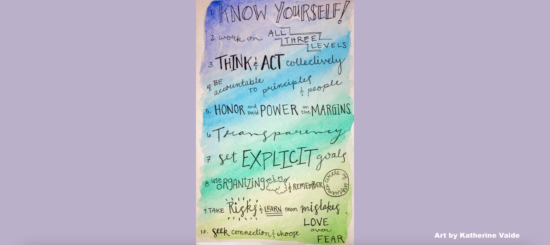 1. KNOW YOURSELF!
2. work on ALL
THREE
LEVELS
3. THINK & ACT collectively
4. BE
accountable TO principles
& people
5. HONOR and build POWER on the MARGINS
6. Transparency
7. set EXPLICIT goals
8. use ORGANIZING & REMEMBER
9. TAKE Risks & LEARN from mistakes
10. seek connection & choose
LOVE
over
FEAR
Art by Katherine Valde